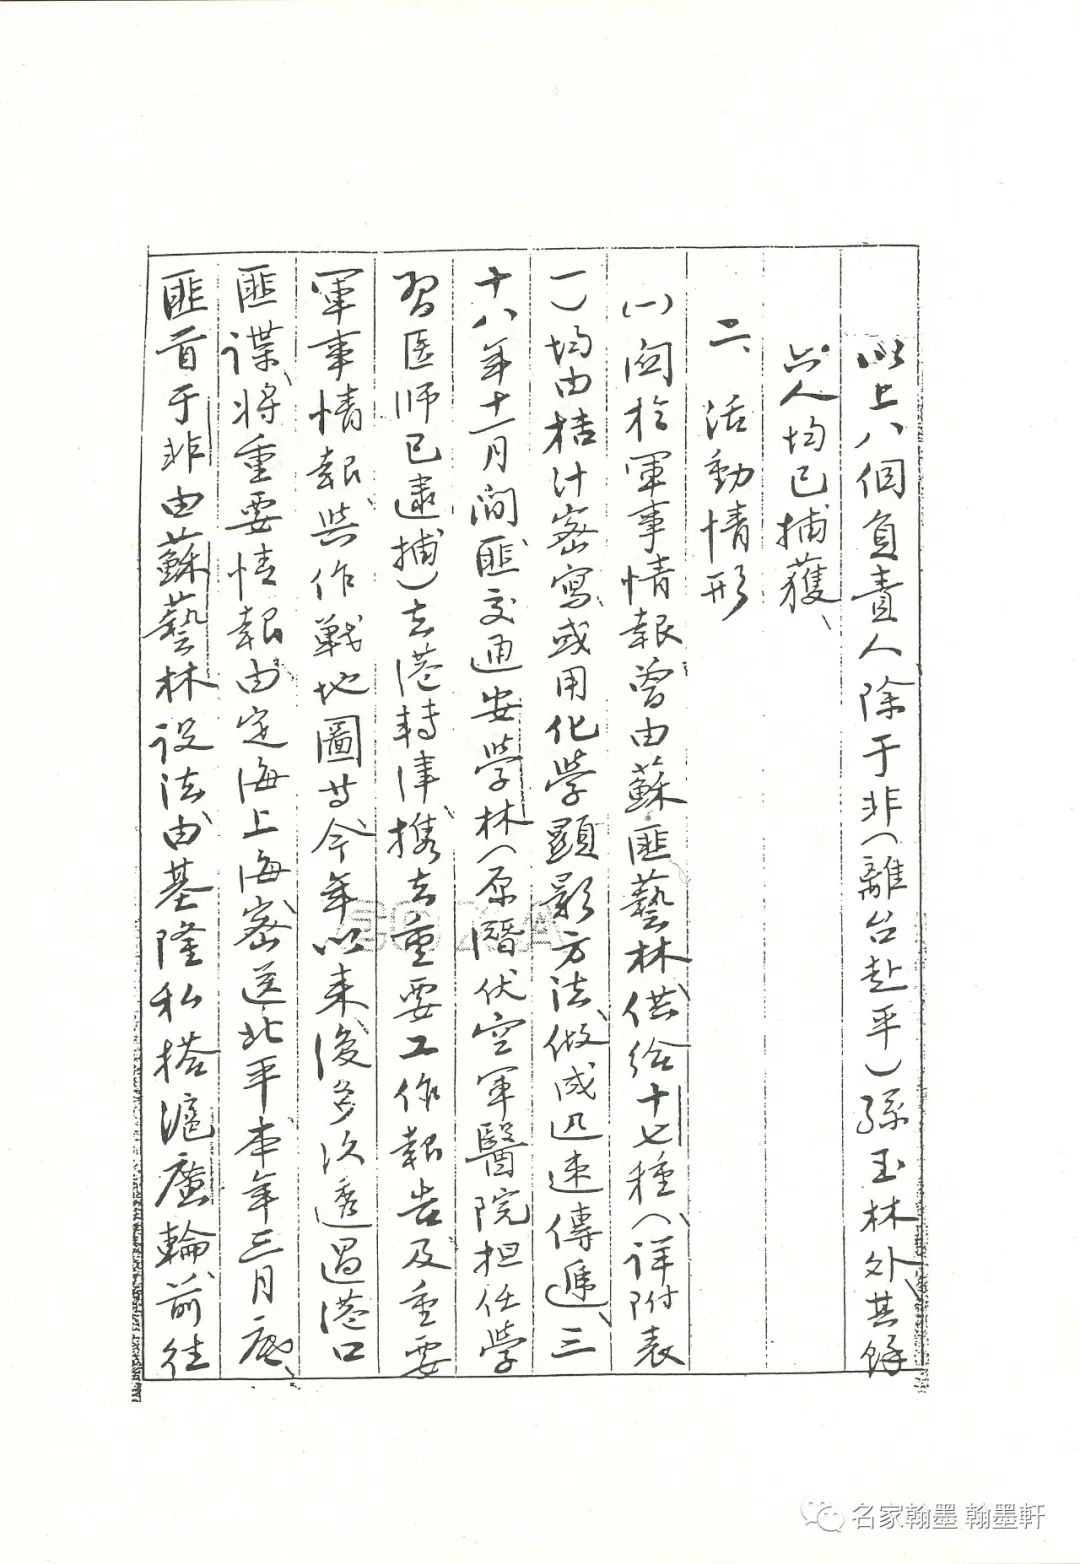 以上八個負責人除于非(離台赴平)孫玉林外其餘
六人均已捕獲、
二、活動情形
(一)関於軍事情報曾由蘇匪藝林供給十七種(詳附表
一)均由桔汁密寫或用化學顯影方法做成迅速傳遞、三
十八年十一月間匪交通安學林(原潛伏空軍醫院担任學
習医师已逮捕)去港轉津携去重要工作報告及重要
軍事情報與作戰地圖等今年以来後多次透過港口
匪諜將重要情報由定海上海密送北平本年三月底、
匪首于非由蘇藝林設法由基隆私搭滬廣輪前往
名家翰墨 翰墨軒